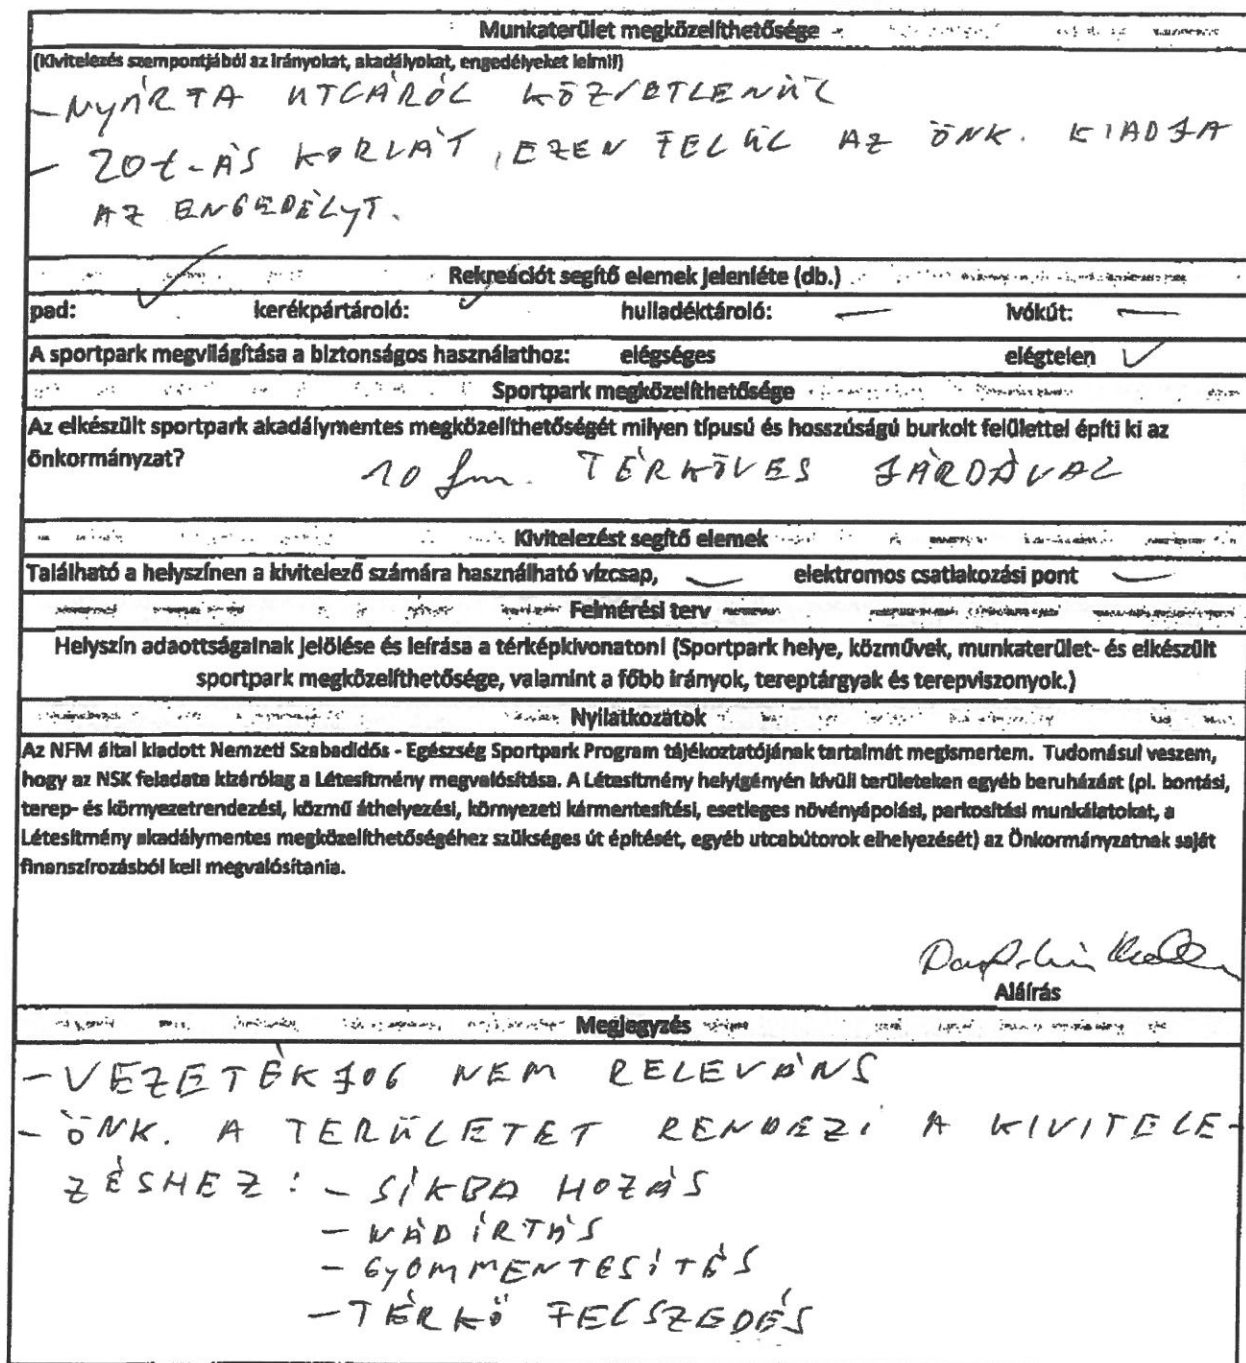 Munkaterület megközelíthetősége
(Kivitelezés szempontjából az irányokat, akadályokat, engedélyeket leírni!)
- NYÁRFA UTCÁRÓL KÖZVETLENÜL
- 20t-ÁS KORLÁT, EZEN FELÜL AZ ÖNK. KIADJA
AZ ENGEDÉLYT.
Rekreációt segítő elemek jelenléte (db.)
pad: ✓ kerékpártároló: ✓ hulladéktároló: — ivókút: —
A sportpark megvilágítása a biztonságos használathoz: elégséges elégtelen ✓
Sportpark megközelíthetősége
Az elkészült sportpark akadálymentes megközelíthetőségét milyen típusú és hosszúságú burkolt felülettel építi ki az
önkormányzat? 10 fm. TÉRKÖVES JÁRDÁVAL
Kivitelezést segítő elemek
Található a helyszínen a kivitelező számára használható vízcsap, — elektromos csatlakozási pont —
Felmérési terv
Helyszín adaottságainak jelölése és leírása a térképkivonaton! (Sportpark helye, közművek, munkaterület- és elkészült
sportpark megközelíthetősége, valamint a főbb irányok, tereptárgyak és terepviszonyok.)
Nyilatkozatok
Az NFM által kiadott Nemzeti Szabadidős - Egészség Sportpark Program tájékoztatójának tartalmát megismertem. Tudomásul veszem,
hogy az NSK feladata kizárólag a Létesítmény megvalósítása. A Létesítmény helyigényén kívüli területeken egyéb beruházást (pl. bontási,
terep- és környezetrendezési, közmű áthelyezési, környezeti kármentesítési, esetleges növényápolási, parkosítási munkálatokat, a
Létesítmény akadálymentes megközelíthetőségéhez szükséges út építését, egyéb utcabútorok elhelyezését) az Önkormányzatnak saját
finanszírozásból kell megvalósítania.
Aláírás
Megjegyzés
- VEZETÉKJOG NEM RELEVÁNS
- ÖNK. A TERÜLETET RENDEZI A KIVITELE-
ZÉSHEZ: - SÍKBA HOZÁS
- NÁDIRTÁS
- GYOMMENTESÍTÉS
- TÉRKŐ FELSZEDÉS